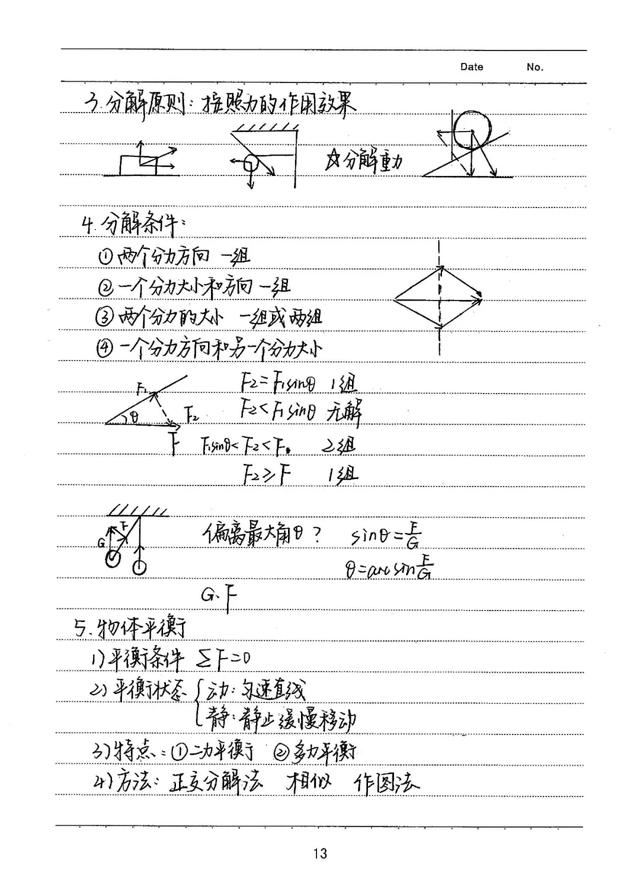 Date No.
3.分解原则：按照力的作用效果
☆分解重力
4.分解条件：
①两个分力方向 一组
②一个分力大小和方向 一组
③两个分力的大小 一组或两组
④一个分力方向和另一个分力大小
F₁ θ F₂ F
F₂=F₁sinθ 1组
F₂<F₁sinθ 无解
F₁sinθ<F₂<F 2组
F₂≥F 1组
G F
偏离最大角θ？ sinθ=F/G
θ=arcsin F/G
G.F
5.物体平衡
1)平衡条件 ΣF=0
2)平衡状态 {动：匀速直线
静：静止 缓慢移动
3)特点：①二力平衡 ②多力平衡
4)方法：正交分解法 相似 作图法
13